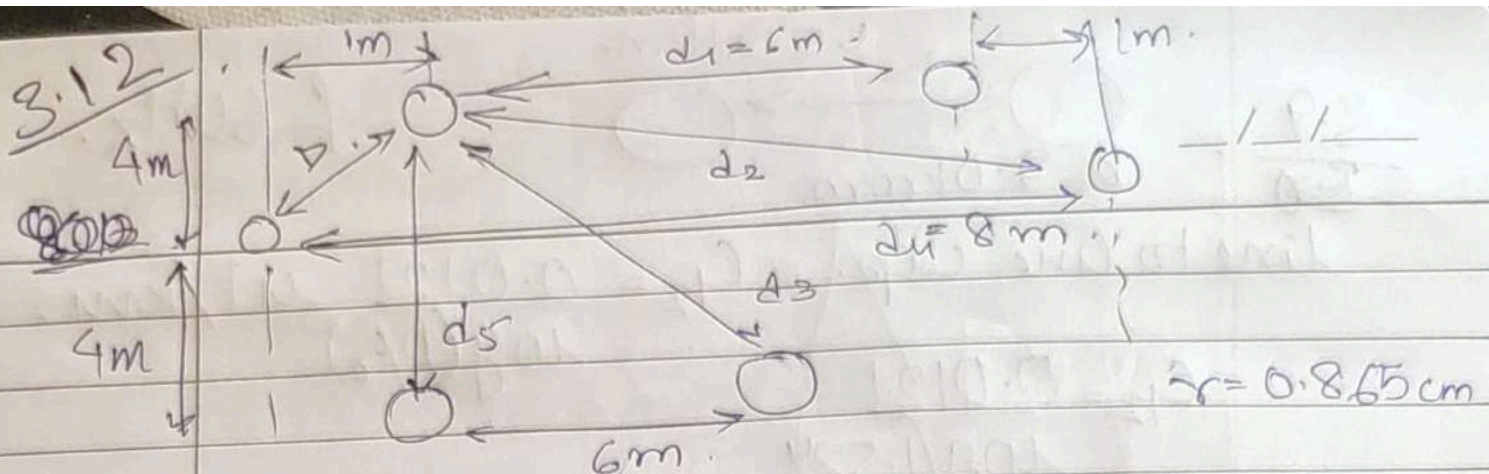 3.12
1m
d1 = 6m
1m.
4m
D
d2
__/__/____
d4 = 8m
4m
d5
d3
r = 0.865cm
6m.